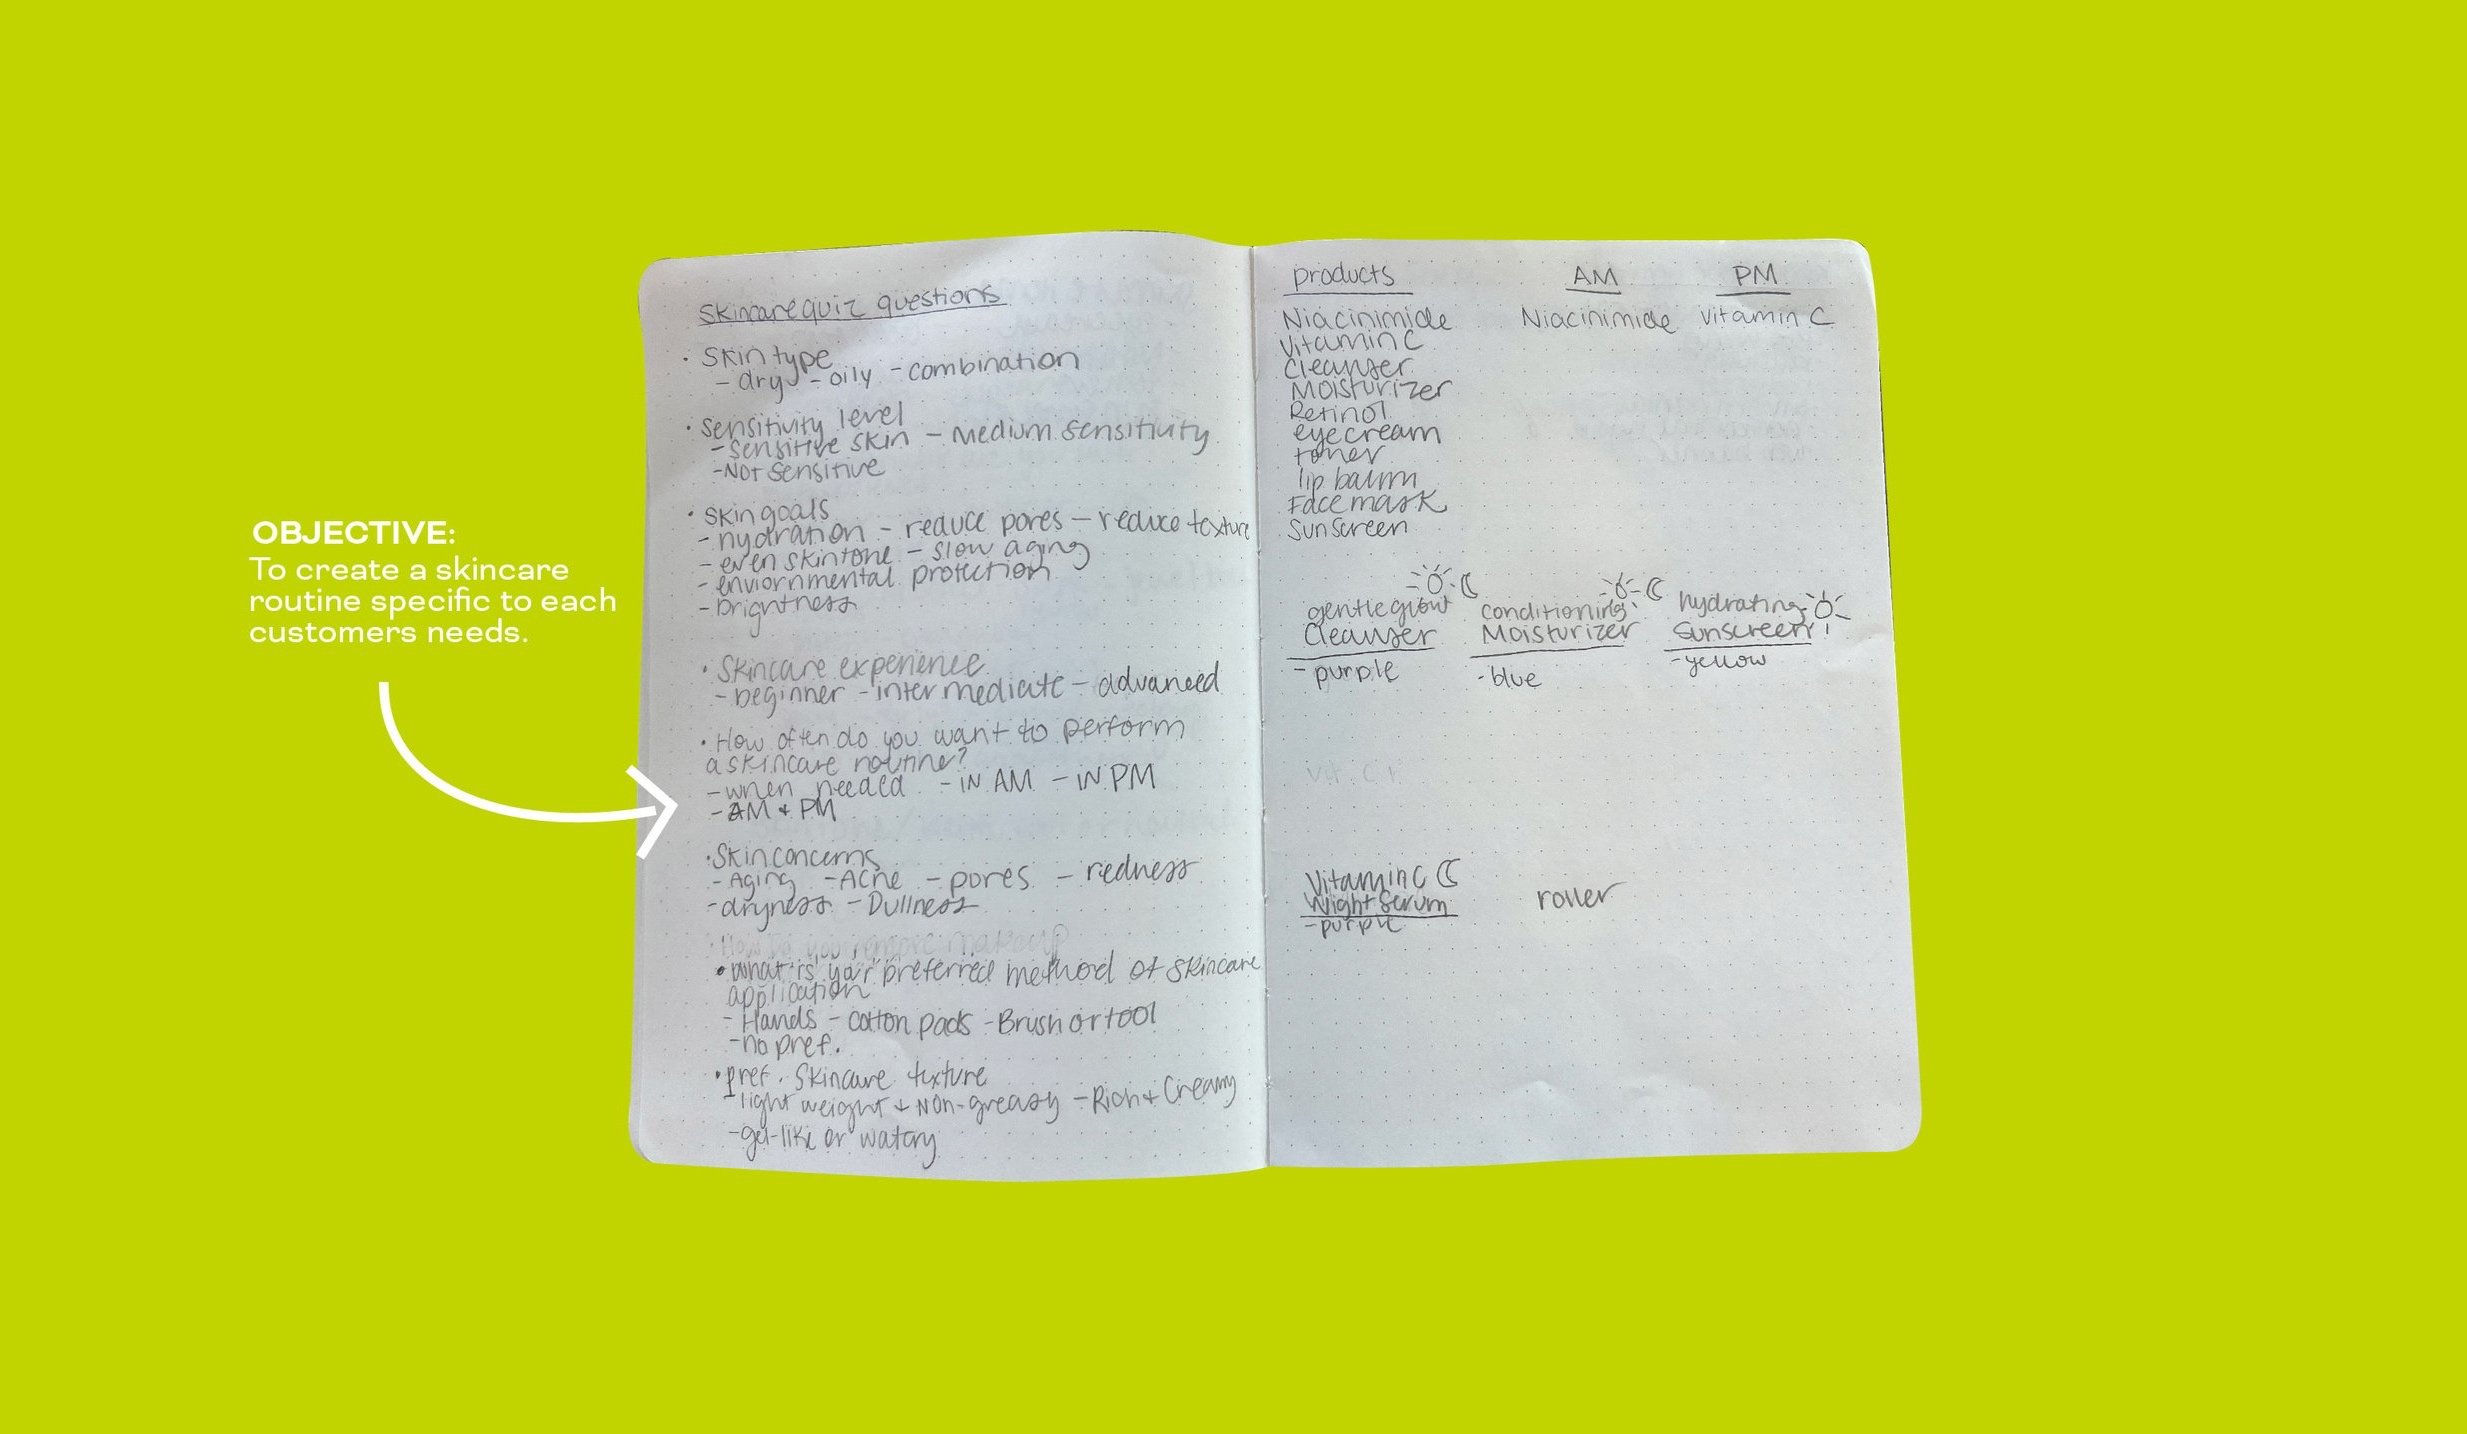 OBJECTIVE:
To create a skincare
routine specific to each
customers needs.
Skincare quiz questions
· Skin type
- dry - oily - combination
· Sensitivity level
- sensitive skin - Medium sensitivity
- Not sensitive
· Skin goals
- hydration - reduce pores - reduce texture
- even skintone - slow aging
- enviornmental protection
- brightness
· Skincare experience
- beginner - intermediate - advanced
· How often do you want to perform
a skincare routine?
- when needed - in AM - in PM
- AM + PM
· Skin concerns
- Aging - Acne - pores - redness
- dryness - Dullness
· How do you remove makeup
· what is your preferred method of skincare
application
- Hands - cotton pads - Brush or tool
- no pref.
· pref. skincare texture
- light weight + Non-greasy - Rich + Creamy
- gel-like or watery
products AM PM
Niacinimide Niacinimide vitamin C
vitamin C
Cleanser
Moisturizer
Retinol
eye cream
toner
lip balm
Face mask
Sunscreen
gentle glow conditioning hydrating
Cleanser Moisturizer Sunscreen
- purple - blue - yellow
vit C
Vitamin C
Night Serum roller
- purple